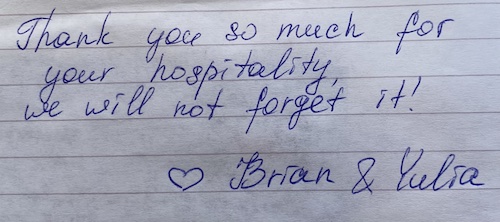 Thank you so much for
your hospitality,
we will not forget it!
♡ Brian & Yulia